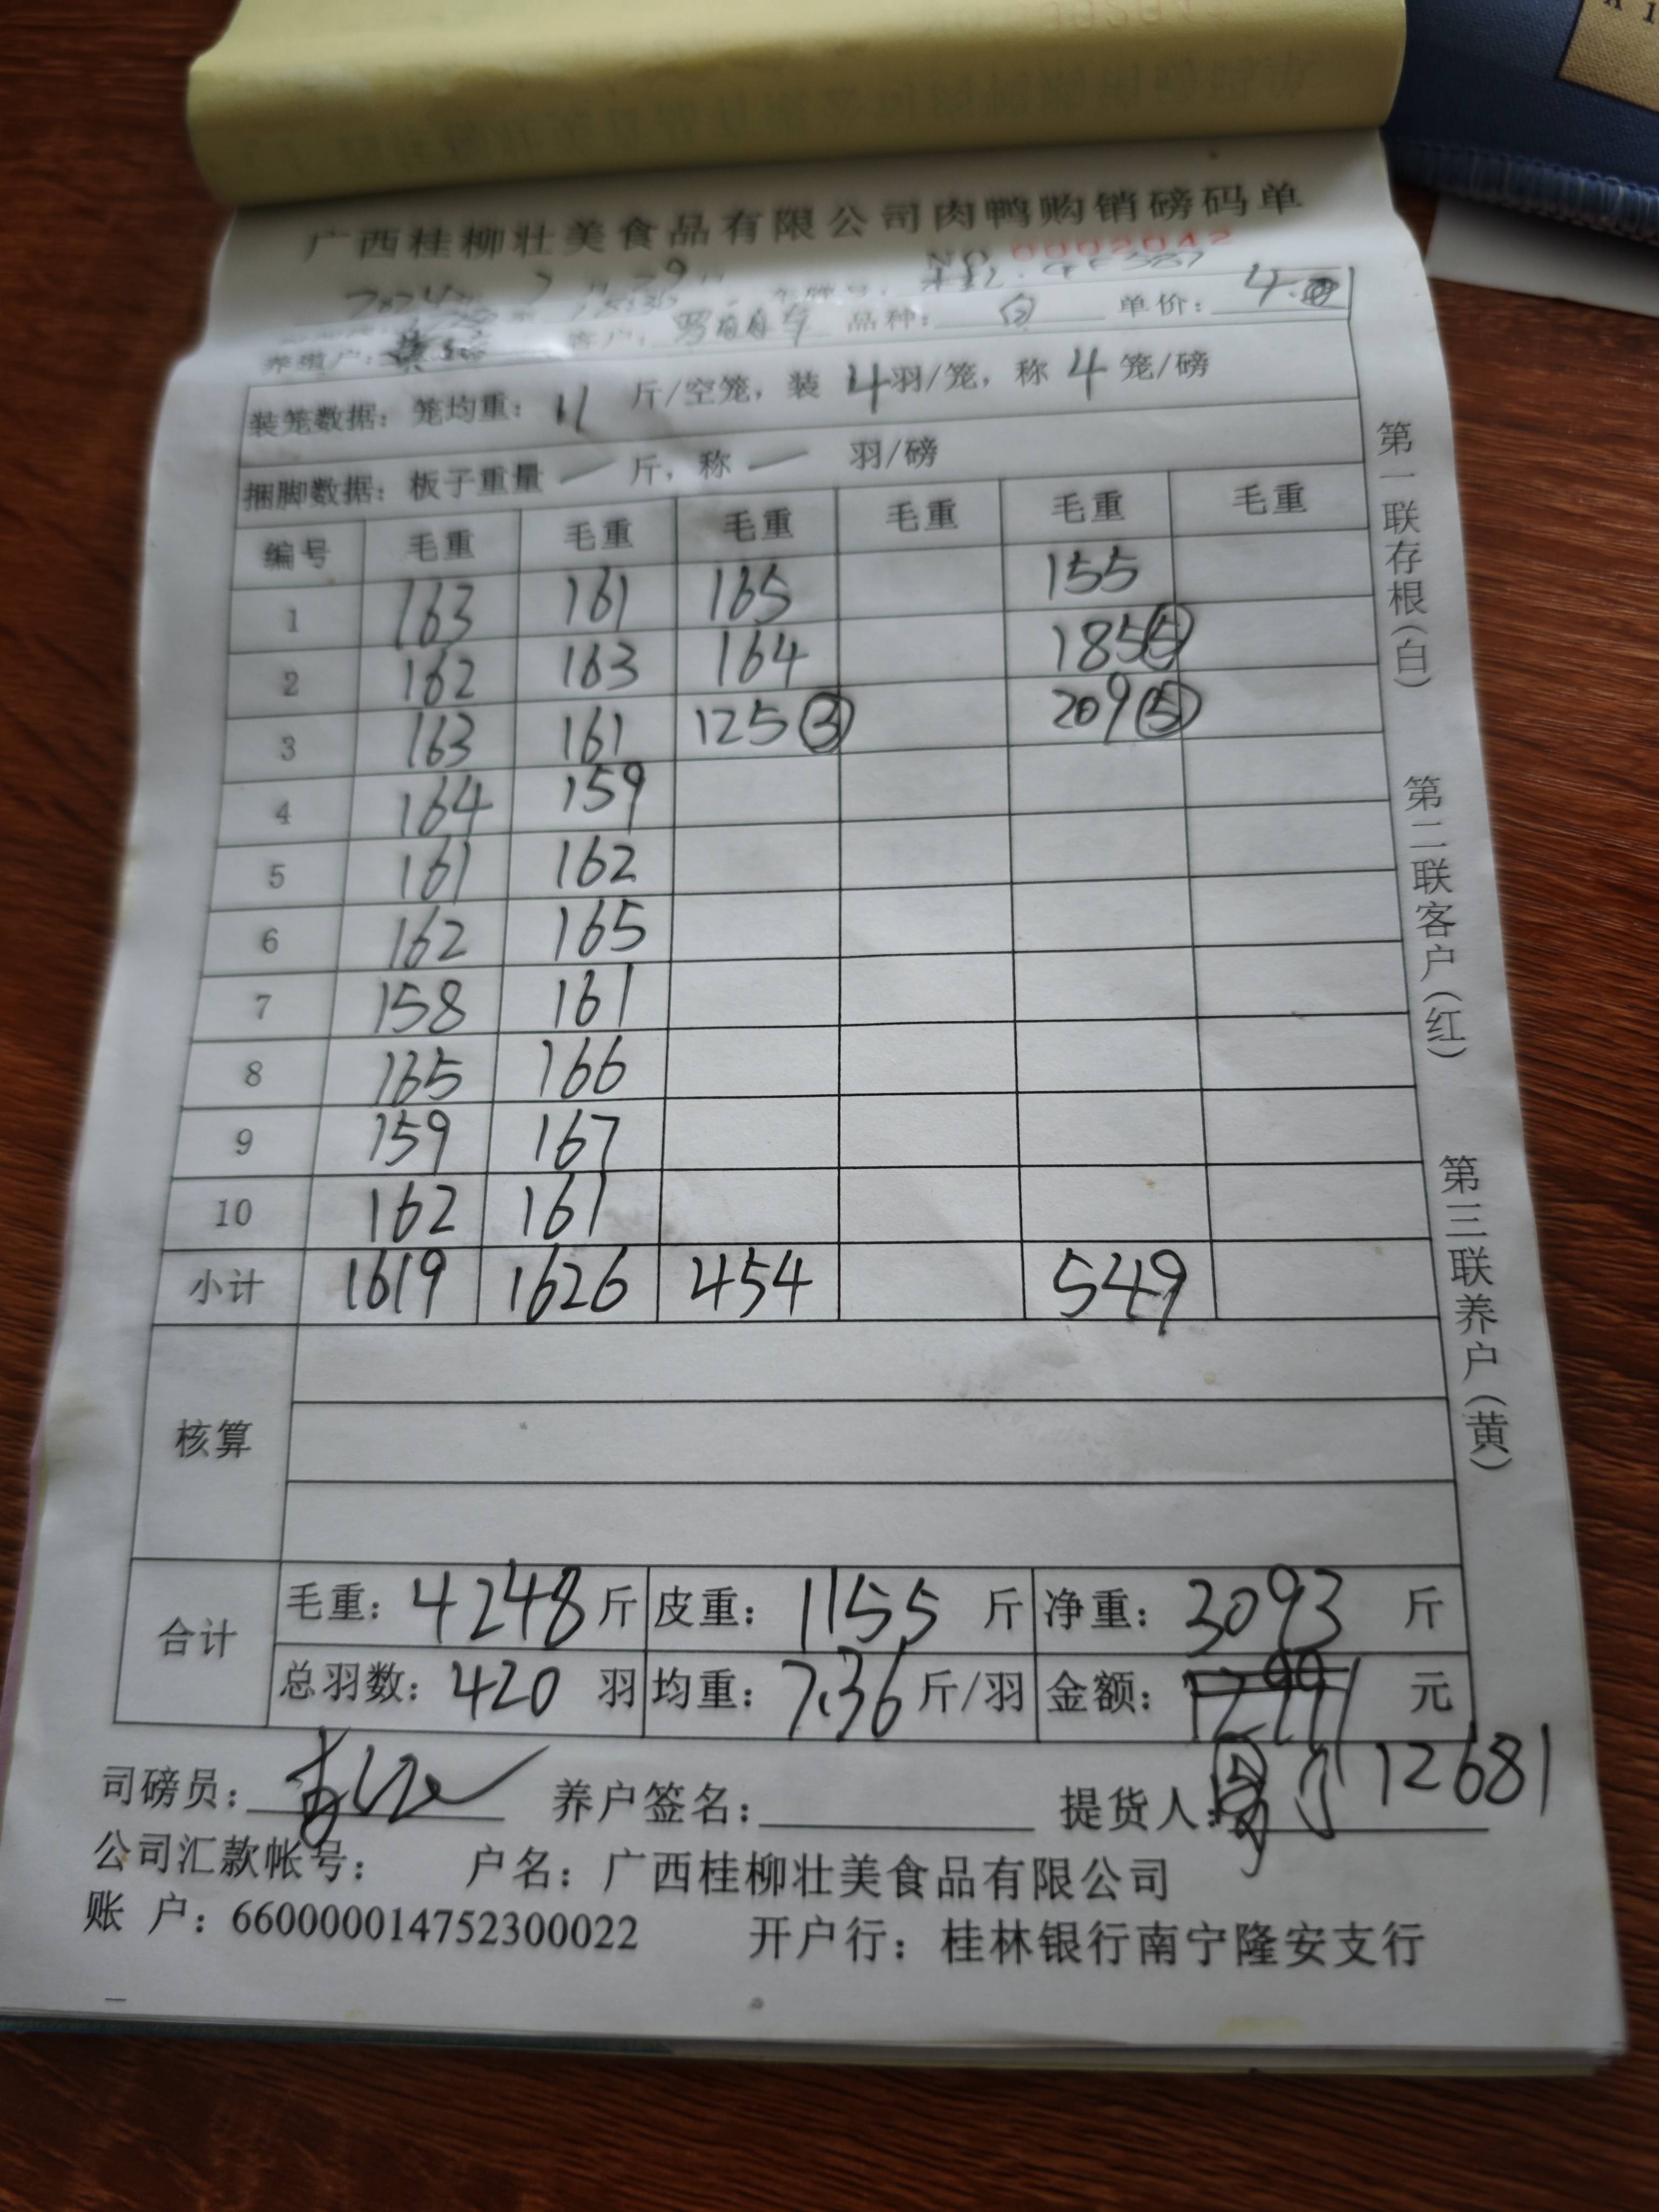 广西桂柳壮美食品有限公司肉鸭购销磅码单
NO 0002042
养殖户： 客户： 品种： 白 单价： 4.
装笼数据：笼均重： 11 斤/空笼，装 4 羽/笼，称 4 笼/磅
捆脚数据：板子重量 — 斤，称 — 羽/磅
编号 毛重 毛重 毛重 毛重 毛重 毛重
1 163 161 165 155
2 162 163 164 185⑤
3 163 161 125③ 209⑤
4 164 159
5 161 162
6 162 165
7 158 161
8 165 166
9 159 167
10 162 161
小计 1619 1626 454 549
核算
合计
毛重：4248斤 皮重：1155斤 净重：3093斤
总羽数：420羽 均重：7.36斤/羽 金额： 元
12681
司磅员： 养户签名： 提货人：
公司汇款帐号： 户名：广西桂柳壮美食品有限公司
账 户：660000014752300022 开户行：桂林银行南宁隆安支行
第一联存根（白） 第二联客户（红） 第三联养户（黄）